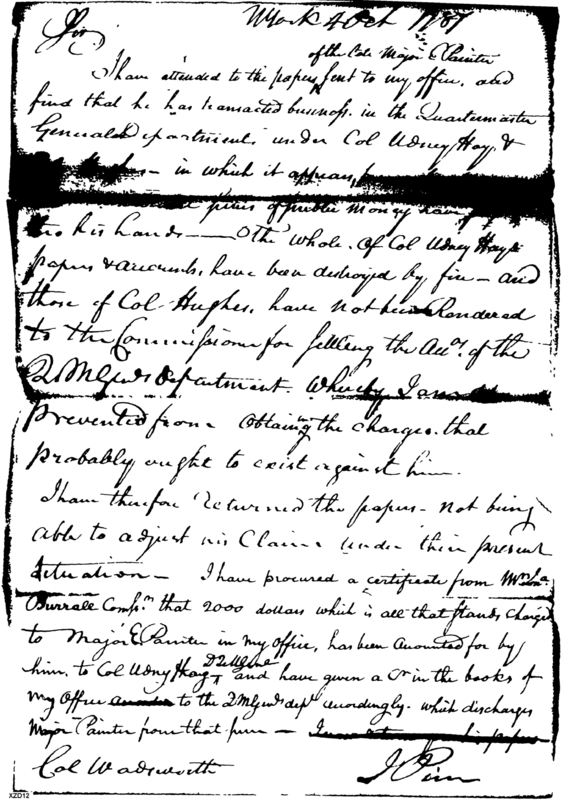 NYork 4 Oct 1787
Sir,
of the late Major E Painter
I have attended to the papers sent to my office, and
find that he has transacted business in the Quartermaster
Generals Department under Col Udney Hay &
in which it appears,
of public money have
his hands — The whole of Col Udney Hays
papers & accounts, have been destroyed by fire — and
those of Col Hughes, have not been Rendered
to the Commissioner for settling the Accts. of the
Q M Genls department. Whereby I am
prevented from obtaining the charges that
probably ought to exist against him.
I have therefore returned the papers — not being
able to adjust his Claims under their present
situation — I have procured a certificate from Mr Jona.
Burrall Comsr. that 2000 dollars which is all that stands charged
to Major E Painter in my office, has been accounted for by
him, to Col Udny Hay D Q M Genl and have given a Cr in the books of
my Office to the Q M Genls dept accordingly. which discharges
Major Painter from that sum —
Col Wadsworth
J Pierce
XZD12